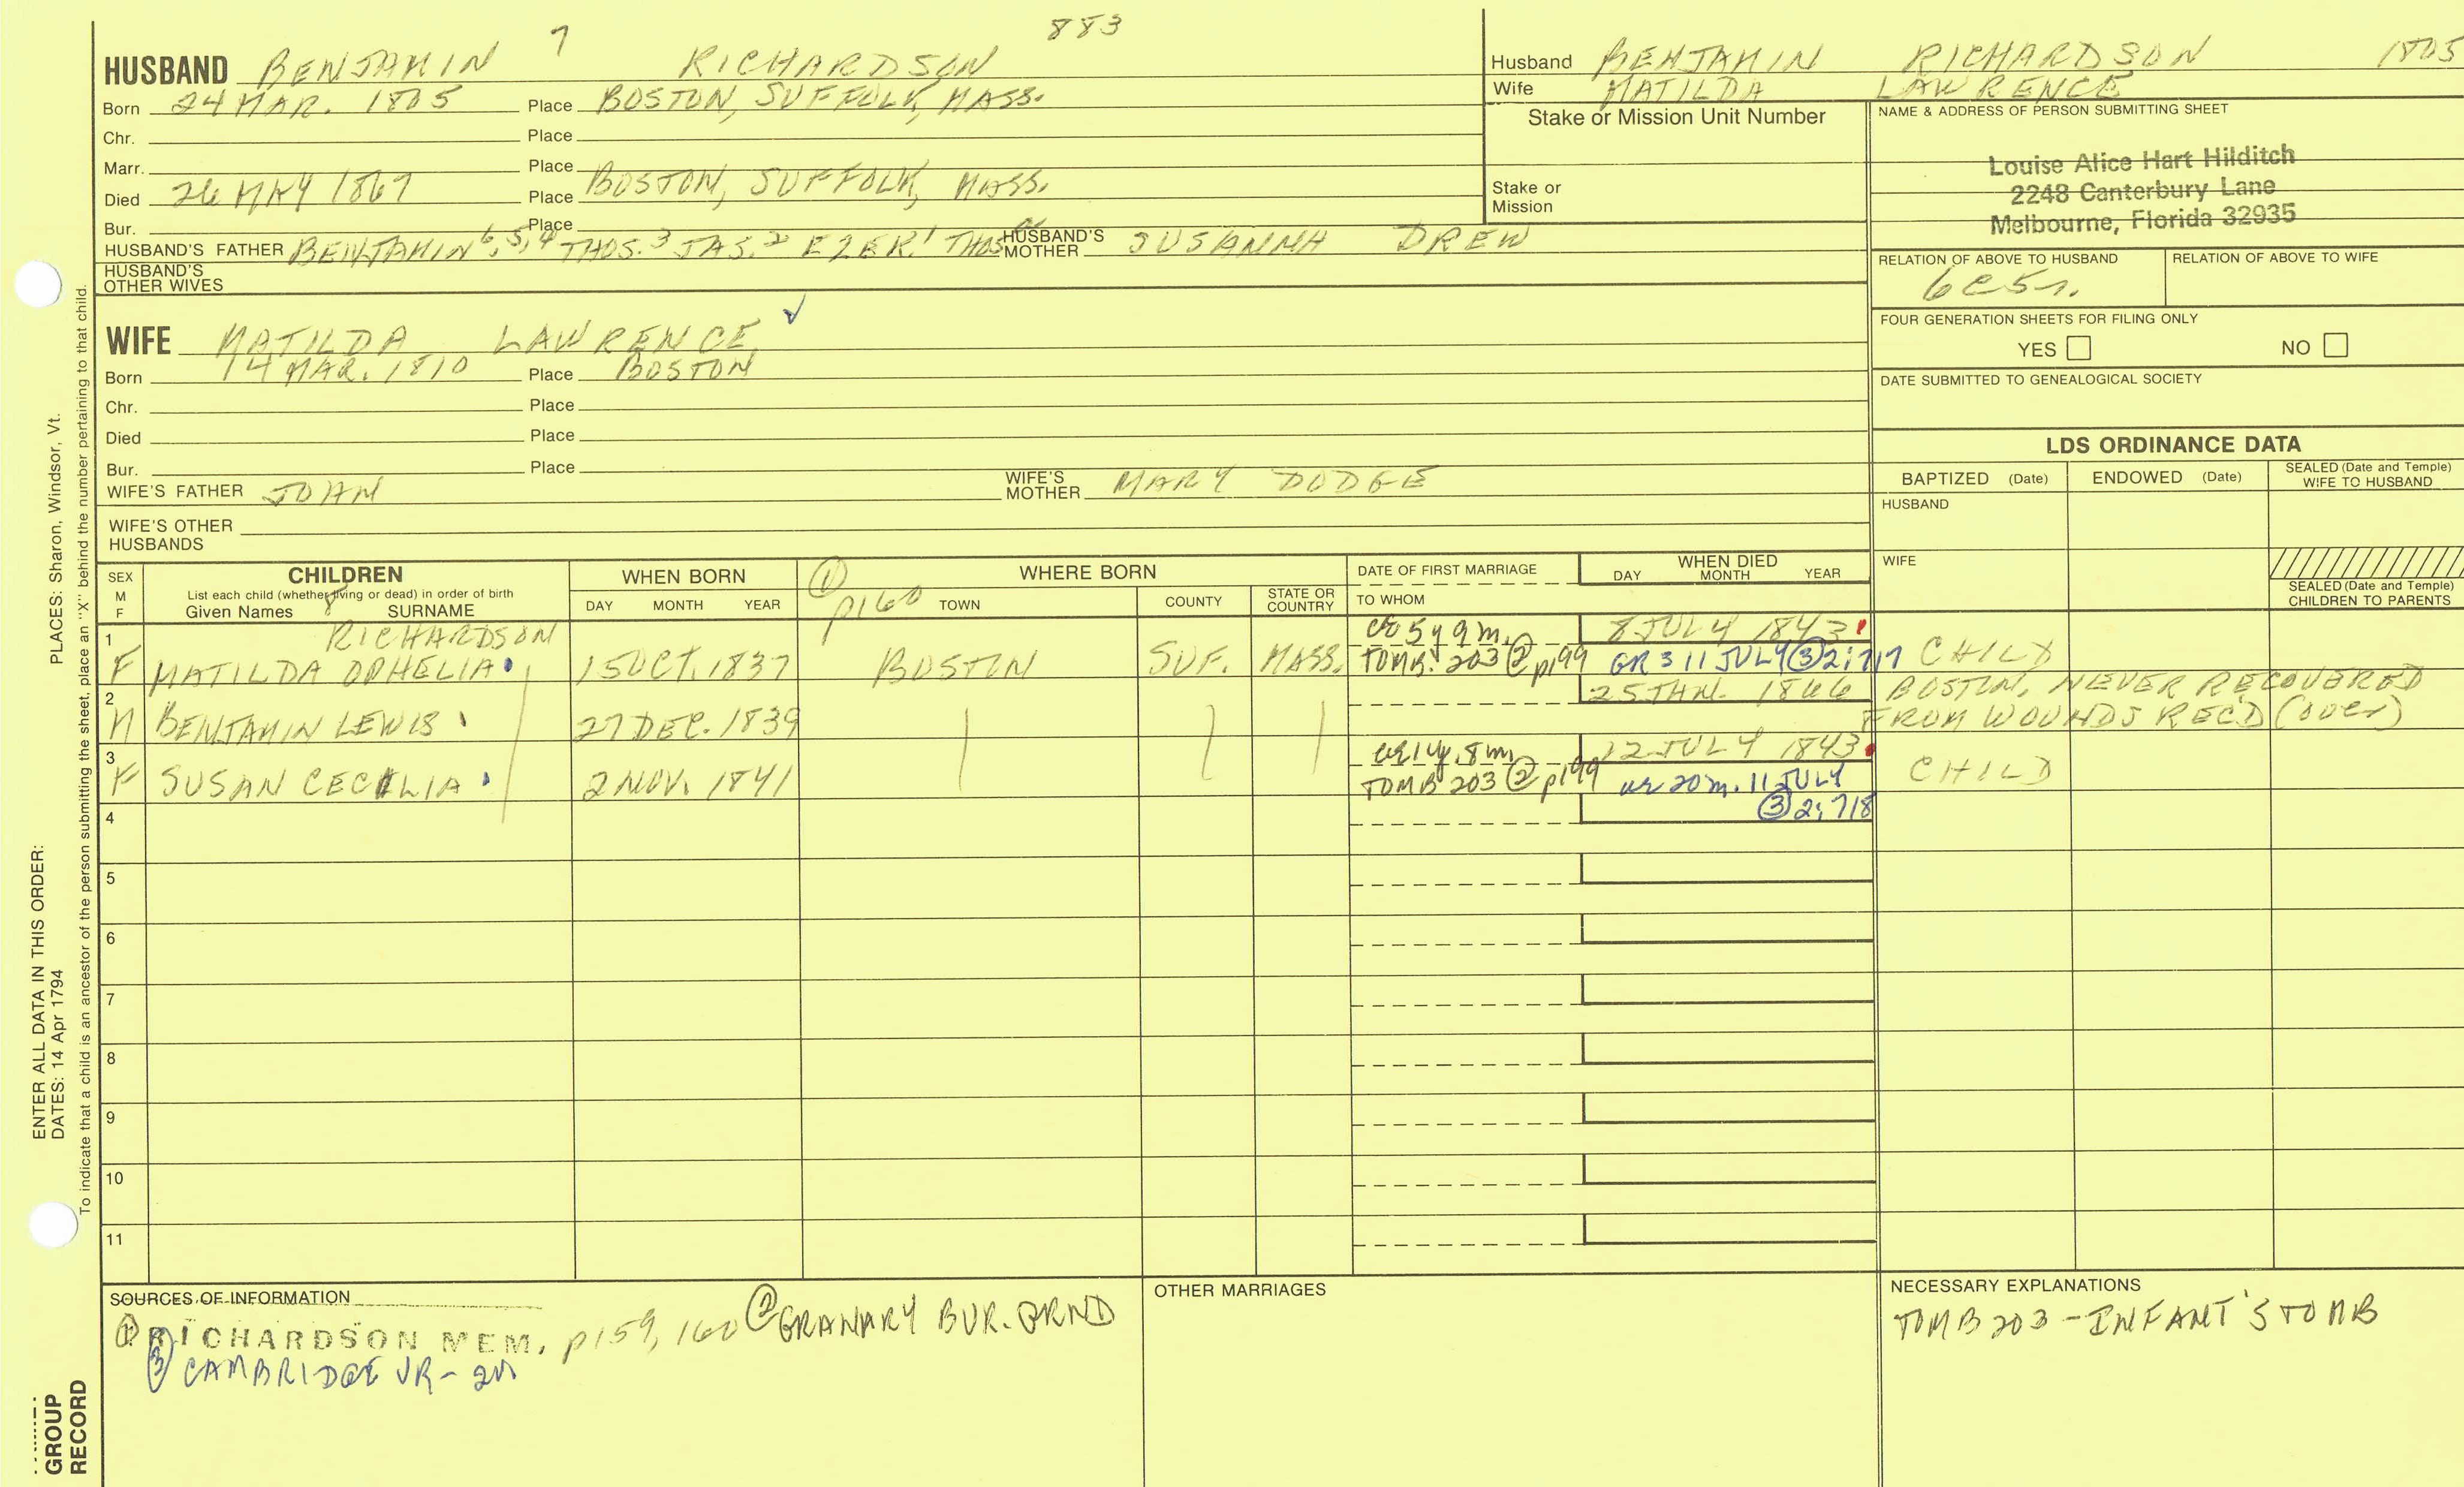 7 883
HUSBAND BENJAMIN RICHARDSON
Born 24 MAR. 1805 Place BOSTON, SUFFOLK, MASS.
Chr. Place
Marr. Place
Died 26 MAY 1867 Place BOSTON, SUFFOLK, MASS.
Bur. Place
HUSBAND'S FATHER BENJAMIN 6, 5, 4 THOS. 3 JAS. 2 EZER. 1 THOS HUSBAND'S MOTHER SUSANNA DREW
HUSBAND'S OTHER WIVES
Husband BENJAMIN RICHARDSON 1805
Wife MATILDA LAWRENCE
Stake or Mission Unit Number
Stake or Mission
NAME & ADDRESS OF PERSON SUBMITTING SHEET
Louise Alice Hart Hilditch
2248 Canterbury Lane
Melbourne, Florida 32935
RELATION OF ABOVE TO HUSBAND RELATION OF ABOVE TO WIFE
6C5r.
FOUR GENERATION SHEETS FOR FILING ONLY
YES NO
DATE SUBMITTED TO GENEALOGICAL SOCIETY
WIFE MATILDA LAWRENCE
Born 14 MAR. 1810 Place BOSTON
Chr. Place
Died Place
Bur. Place
WIFE'S FATHER JOHN WIFE'S MOTHER MARY DODGE
WIFE'S OTHER HUSBANDS
LDS ORDINANCE DATA
BAPTIZED (Date) ENDOWED (Date) SEALED (Date and Temple) WIFE TO HUSBAND
HUSBAND
WIFE
SEALED (Date and Temple) CHILDREN TO PARENTS
SEX M F
CHILDREN
List each child (whether living or dead) in order of birth
Given Names 8 SURNAME
WHEN BORN
DAY MONTH YEAR
① p160
WHERE BORN
TOWN COUNTY STATE OR COUNTRY
DATE OF FIRST MARRIAGE
TO WHOM
WHEN DIED
DAY MONTH YEAR
1 RICHARDSON æ 5y 9m. 8 JULY 1843
F MATILDA OPHELIA 15 OCT. 1837 BOSTON SUF. MASS. TOMB. 203 ② p199 GR 3 11 JULY ③ 2:717 CHILD
2 25 JAN. 1866 BOSTON, NEVER RECOVERED
M BENJAMIN LEWIS 27 DEC. 1839 FROM WOUNDS REC'D (over)
3 æ 1y. 8m. 12 JULY 1843
F SUSAN CECILIA 2 NOV. 1841 TOMB 203 ② p199 ae 20m. 11 JULY CHILD
4 ③ 2:718
5
6
7
8
9
10
11
SOURCES OF INFORMATION
① RICHARDSON MEM. p159, 160 ② GRANARY BUR. GRND
③ CAMBRIDGE VR-
OTHER MARRIAGES
NECESSARY EXPLANATIONS
TOMB 203 - INFANT'S TOMB
PLACES: Sharon, Windsor, Vt.
To indicate that a child is an ancestor of the person submitting the sheet, place an "X" behind the number pertaining to that child.
ENTER ALL DATA IN THIS ORDER:
DATES: 14 Apr 1794
GROUP
RECORD